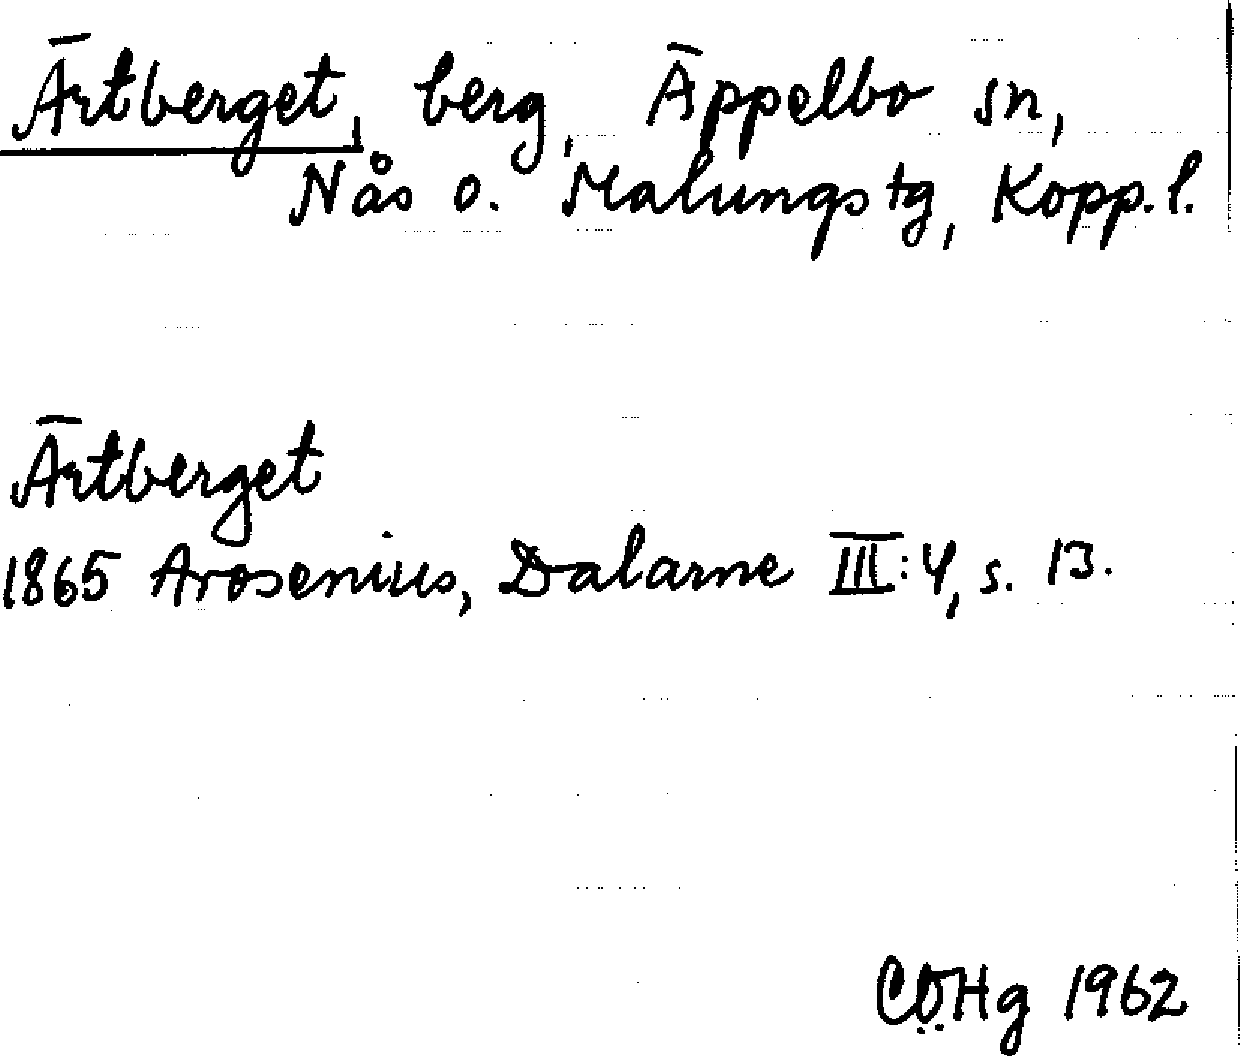 Ärtberget, berg, Äppelbo sn,
Nås o. Malungs tg, Kopp. l.
Ärtberget
1865 Arosenius, Dalarne III:4, s. 13.
CÖHg 1962